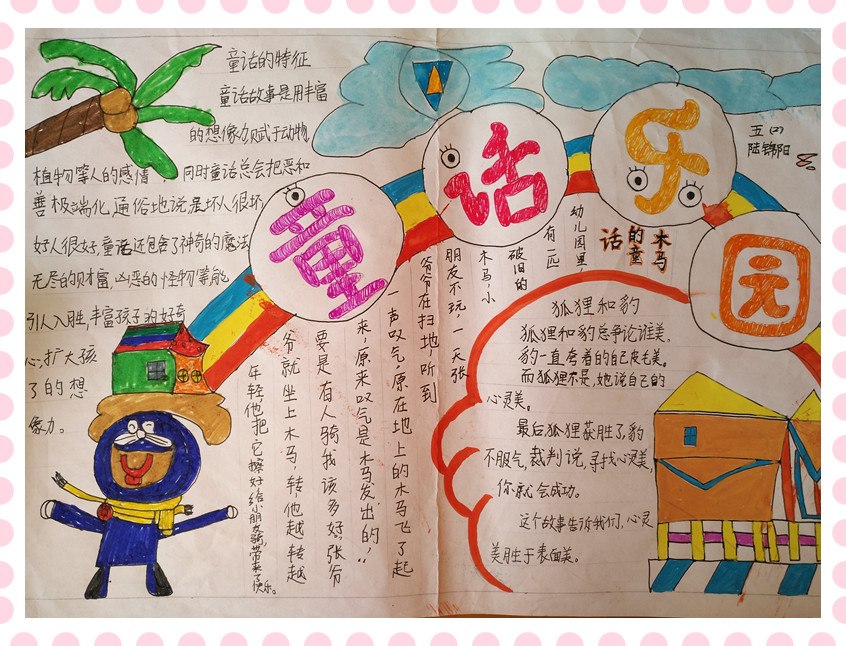 童话乐园
五(2)
陆锦阳
童话的特征
童话故事是用丰富
的想像力赋于动物
植物等人的感情,同时童话总会把恶和
善极端化,通俗地说是坏人很坏
好人很好,童话还包含了神奇的魔法
无尽的财富,凶恶的怪物等能
引人入胜,丰富孩子的好奇
心,扩大孩
子的想
像力。
木马
的童
话
幼儿园里,
有一匹
破旧的
木马,小
朋友不玩,一天张
爷爷在扫地,听到
一声叹气,原在地上的木马飞了起
来,原来叹气是木马发出的!"
要是有人骑我该多好"张爷
爷就坐上木马,转,他越转越
年轻,他把它擦好给小朋友骑,带来了快乐。
狐狸和豹
狐狸和豹总争论谁美,
豹一直夸着的自己皮毛美。
而狐狸不是,她说自己的
心灵美。
最后,狐狸获胜了,豹
不服气,裁判说,寻找心灵美,
你就会成功。
这个故事告诉我们,心灵
美胜于表面美。